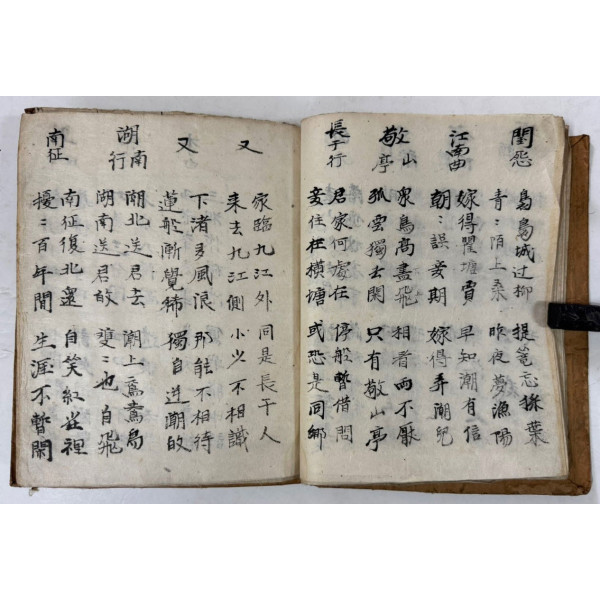 閨怨
島島城过柳 提篭忘採葉
青〻陌上桑 昨夜夢漁陽
江南曲
嫁得瞿塘賈 早知潮有信
朝〻誤妾期 嫁得弄潮兒
敬山亭
衆鳥高盡飛 相看兩不厭
孤雲獨去閑 只有敬山亭
長干行
君家何處在 停船暫借問
妾住在橫塘 或恐是同鄉
又
家臨九江外 同是長干人
来去九江側 小少不相識
又
下渚多風浪 那能不相待
蓮船漸覺稀 獨自迸潮故
湖南行
湖北送君去 湖上鴛鴦鳥
湖南送君故 雙〻也自飛
南征
南征復北還 自笑紅雀裡
擾〻百年間 生涯不暫閑